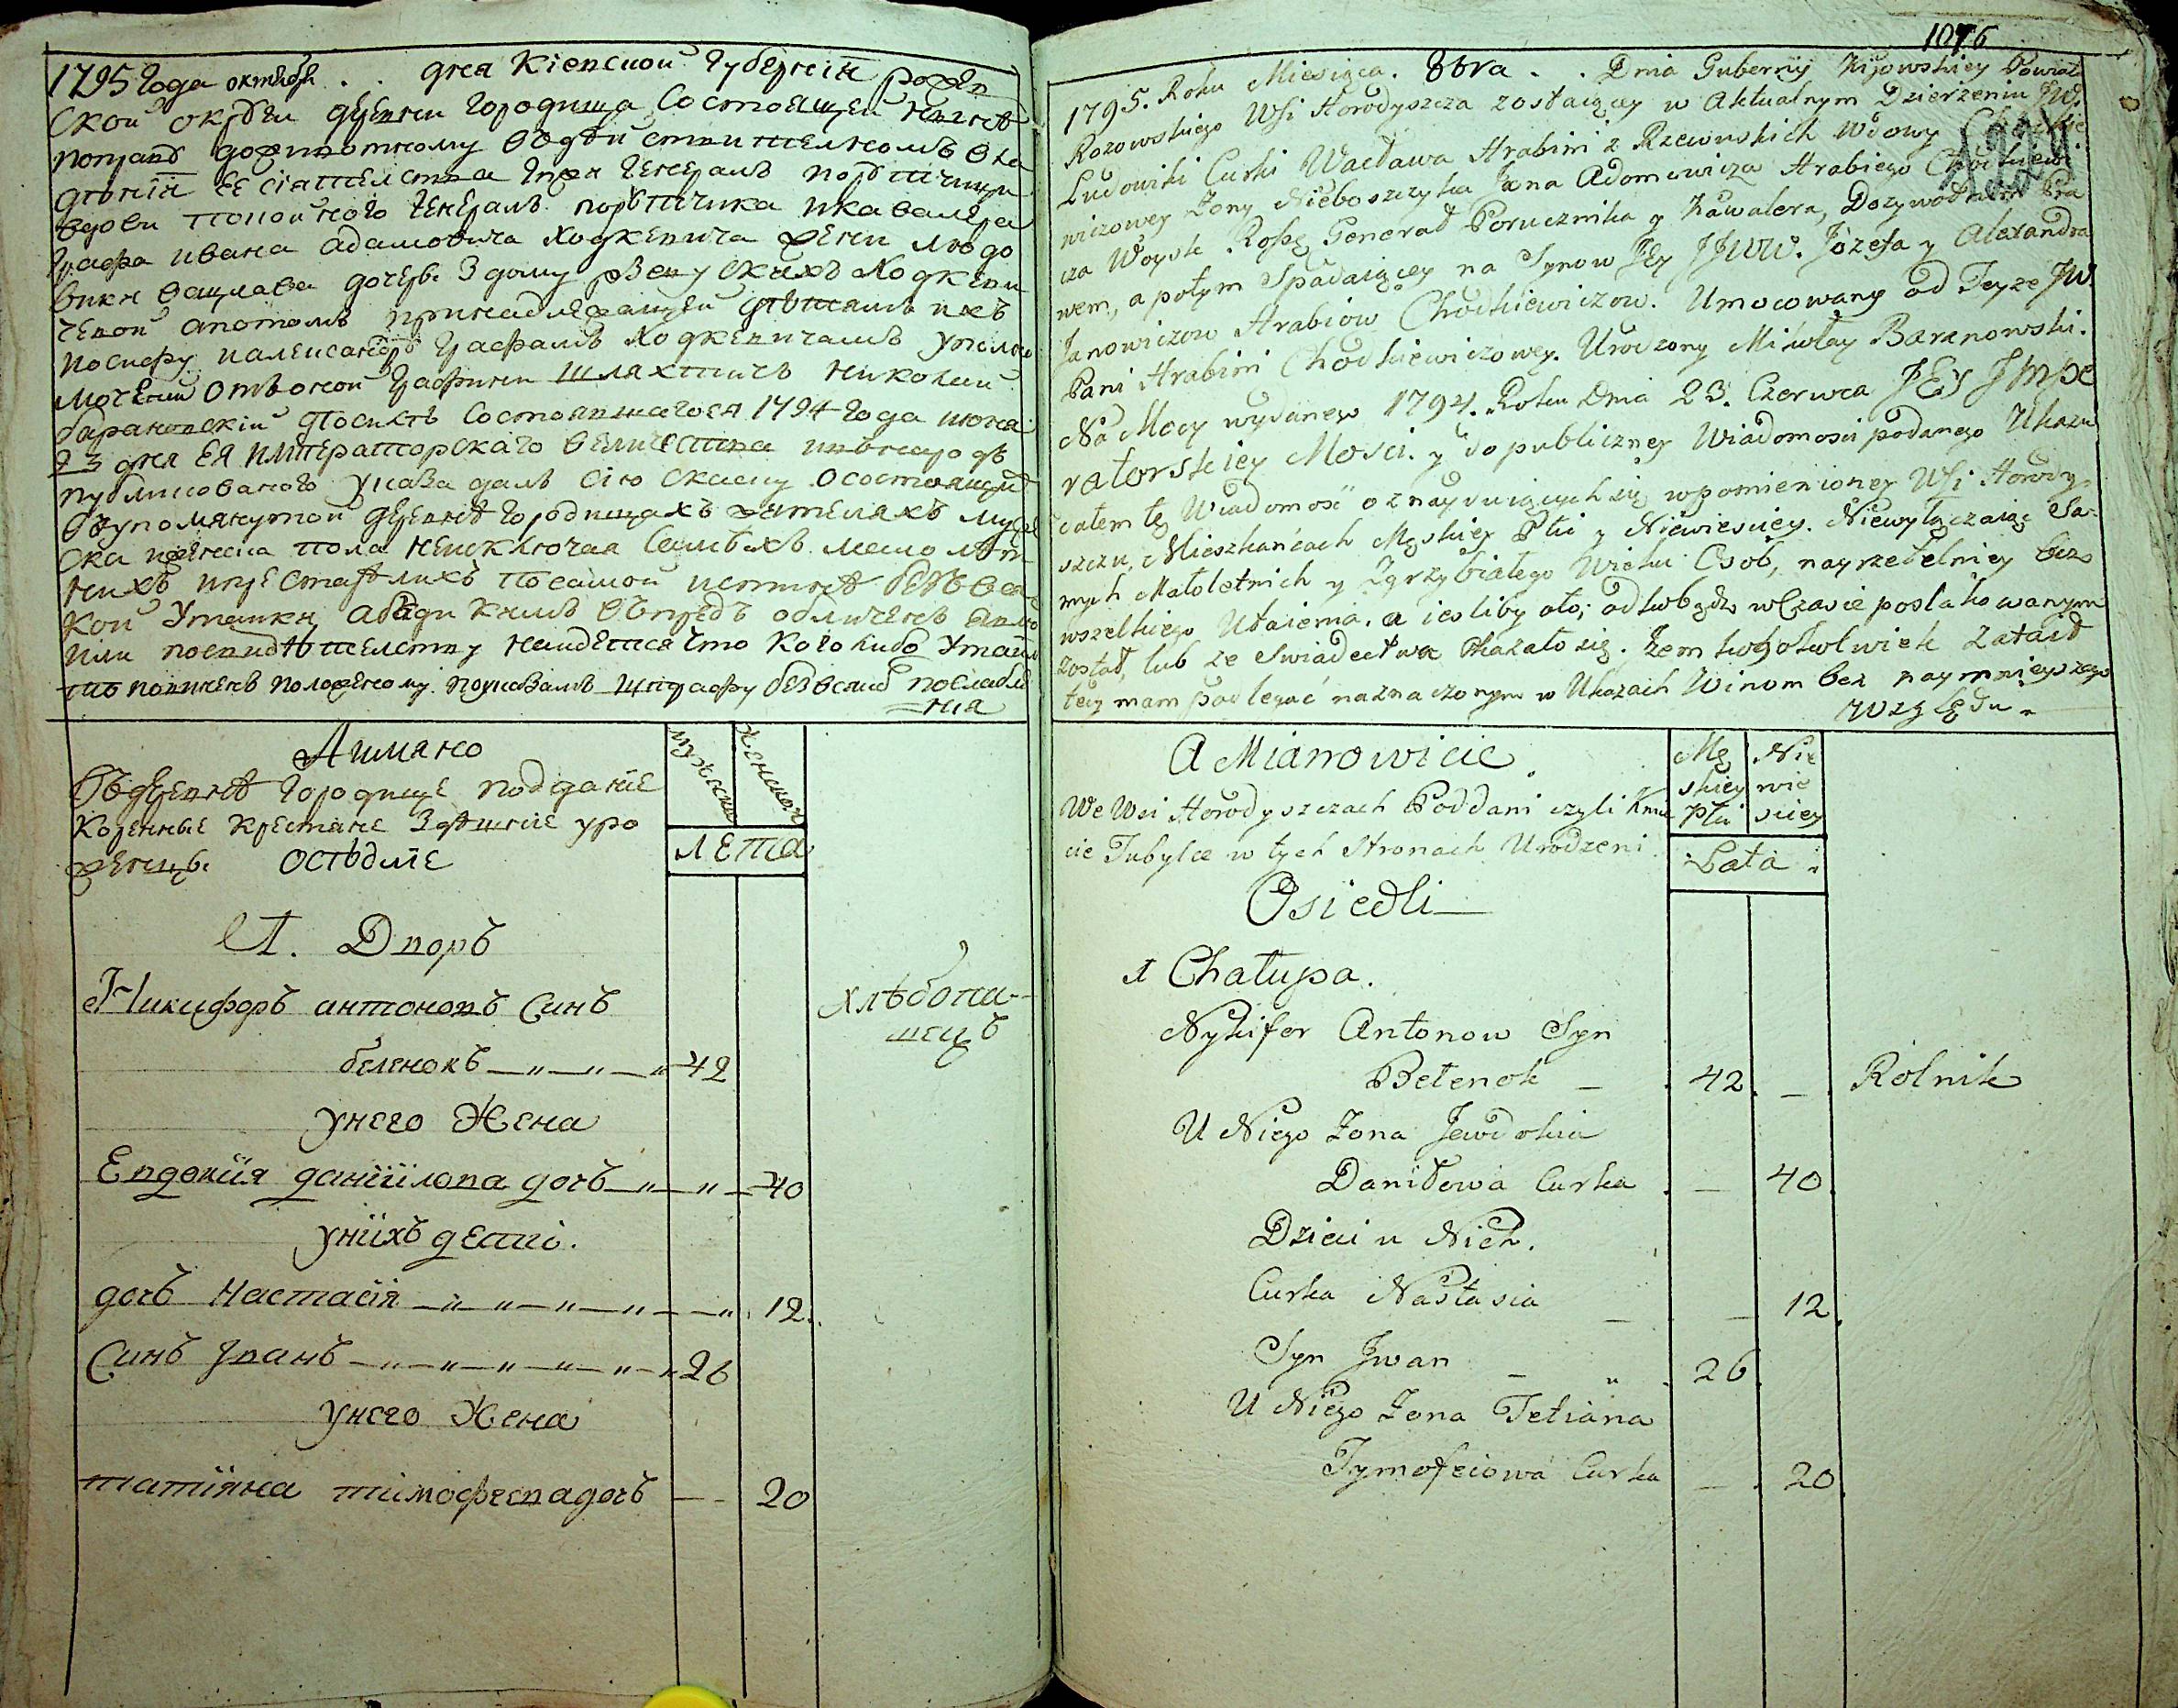 1795 Года октября . . дня Кіевской Губерніи рожев
ской округи деревни Городища состоящей нинѣ
вдови покойного Генералъ порутчика икавалера
Графа ивана адамовича ходкевича жени людо
вики вацлава дочерь Здому ржевускихъ Ходкеви
чевой апотомъ принадлежащей дѣтямъ ихъ
иосифу иалександру Графамъ Ходкевичамъ уполно
моченій отъоной Графини шляхтичъ николай
барановскій посилѣ состоявшагося 1794 года июня
23 дня ЕЯ Императорскаго величества ивънародъ
публикованого указа далъ сію скаску осостоящихъ
ввупомянутой деревнѣ Городищахъ жителяхъ муже
ска иженска пола неисключая самыхъ малолѣт
нихъ ипрестарѣлихъ посамой истинѣ безъ вся
кой утайки
или посвидѣтелству найдется что Кого либо утаил
то повиненъ положеному поуказамъ штрафу безвсяко послабле
нія
Аимяно
Въдеревнѣ Городище подданіе
Коренные Крестяне Здѣшніе уро
женцы. осѣдліе
мужеска
женска
лета
1. Дворъ
Никифоръ антоновъ Синъ
беленокъ — „ — „ — „ 42
хлѣбопа-
шецъ
унего Жена
Евдокіия даніилова дочь — „ — „ — 40
унихъ дети.
дочь Настасія — „ — „ — „ — „ — „ 12.
Синъ Іванъ — „ — „ — „ — „ — „ 26
унего Жена
татіяна тимофеевадочь — - 20
1076
1795. Roku Miesiąca. 8bra . . Dnia Gubernij Kijowskiey Powiatu
Rozowskiego Wsi Horodyszcza zostaiącey w Aktualnym Dzierzeniu JW.
Ludowiki Curki Wacława Hrabini z Rzewuskich Wdowy Chodkie
wiczowey Zony Nieboszczyka Jana Adomowicza Hrabiego Chodkiewi
cza Woysk Rossy: Generał Porucznika y Kawalera, Dozywotnim Pra
wem, a potym Spadaiącey na Synow Jey JJWW. Jozefa y Alexandra
Janowiczow Hrabiow Chodkiewiczow. Umocowany od Teyze JW.
Pani Hrabini Chodkiewiczowey. Urodzony Mikołay Baranowski.
Na Mocy wydanego 1794. Roku Dnia 23. Czerwca JEy Jmpe
ratorskiey Mosci. y do publiczney Wiadomosci podanego Ukazu
całem tę Wiadomosc o znayduiących się wpomienioney Wsi Horody-
szczu, Mieszkańcach Męskiey Płci y Niewiesciey. Niewyłączaiąc Sa-
mych Małoletnich y Zgrzybiałego Wieku Osob, nayrzetelniey bez
wszelkiego Utaienia. a iesliby kto;
został, lub ze Swiadectwa Okazało się. Zem kogokolwiek Zataił
tedy mam podlegać naznaczonym w Ukazach Winom bez naymnieyszego
Względu.
A Mianowicie.
We Wsi Horodyszczach Poddani czyli Kmie
cie Tubylce w tych Stronach Urodzeni.
Mę
skiey
Płci
Nie
wie
sciey
Lata
Osiedli
1 Chałupa.
Nykifer Antonow Syn
Bełenok — . 42 . — . Rolnik
U Niego Zona Jewdokia
Daniłowa Curka . — 40.
Dzieci u Nich.
Curka Nastasia — — 12.
Syn Jwan — „ . 26.
U Niego Zona Tetiana
Tymofeiowa Curka — . 20.